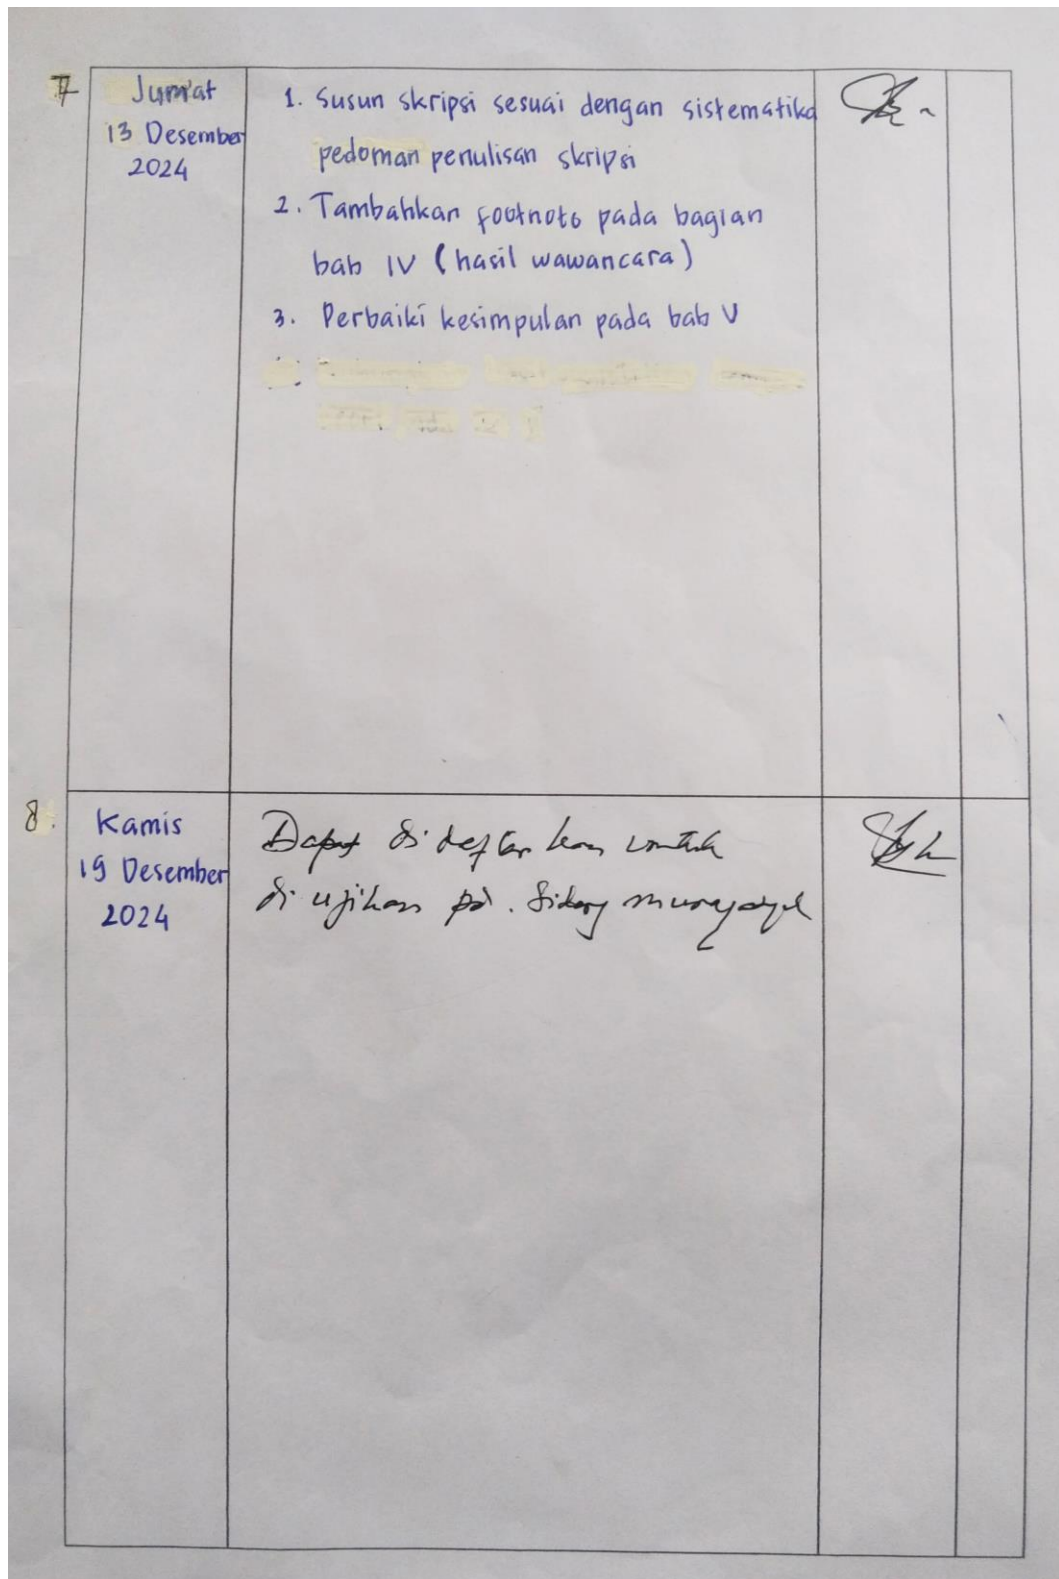 7
Jum'at
13 Desember
2024
1. Susun skripsi sesuai dengan sistematika
pedoman penulisan skripsi
2. Tambahkan footnote pada bagian
bab IV (hasil wawancara)
3. Perbaiki kesimpulan pada bab V
8.
Kamis
19 Desember
2024
Dapat di daftar kan untuk
di ujikan pd. Sidang munaqasyah